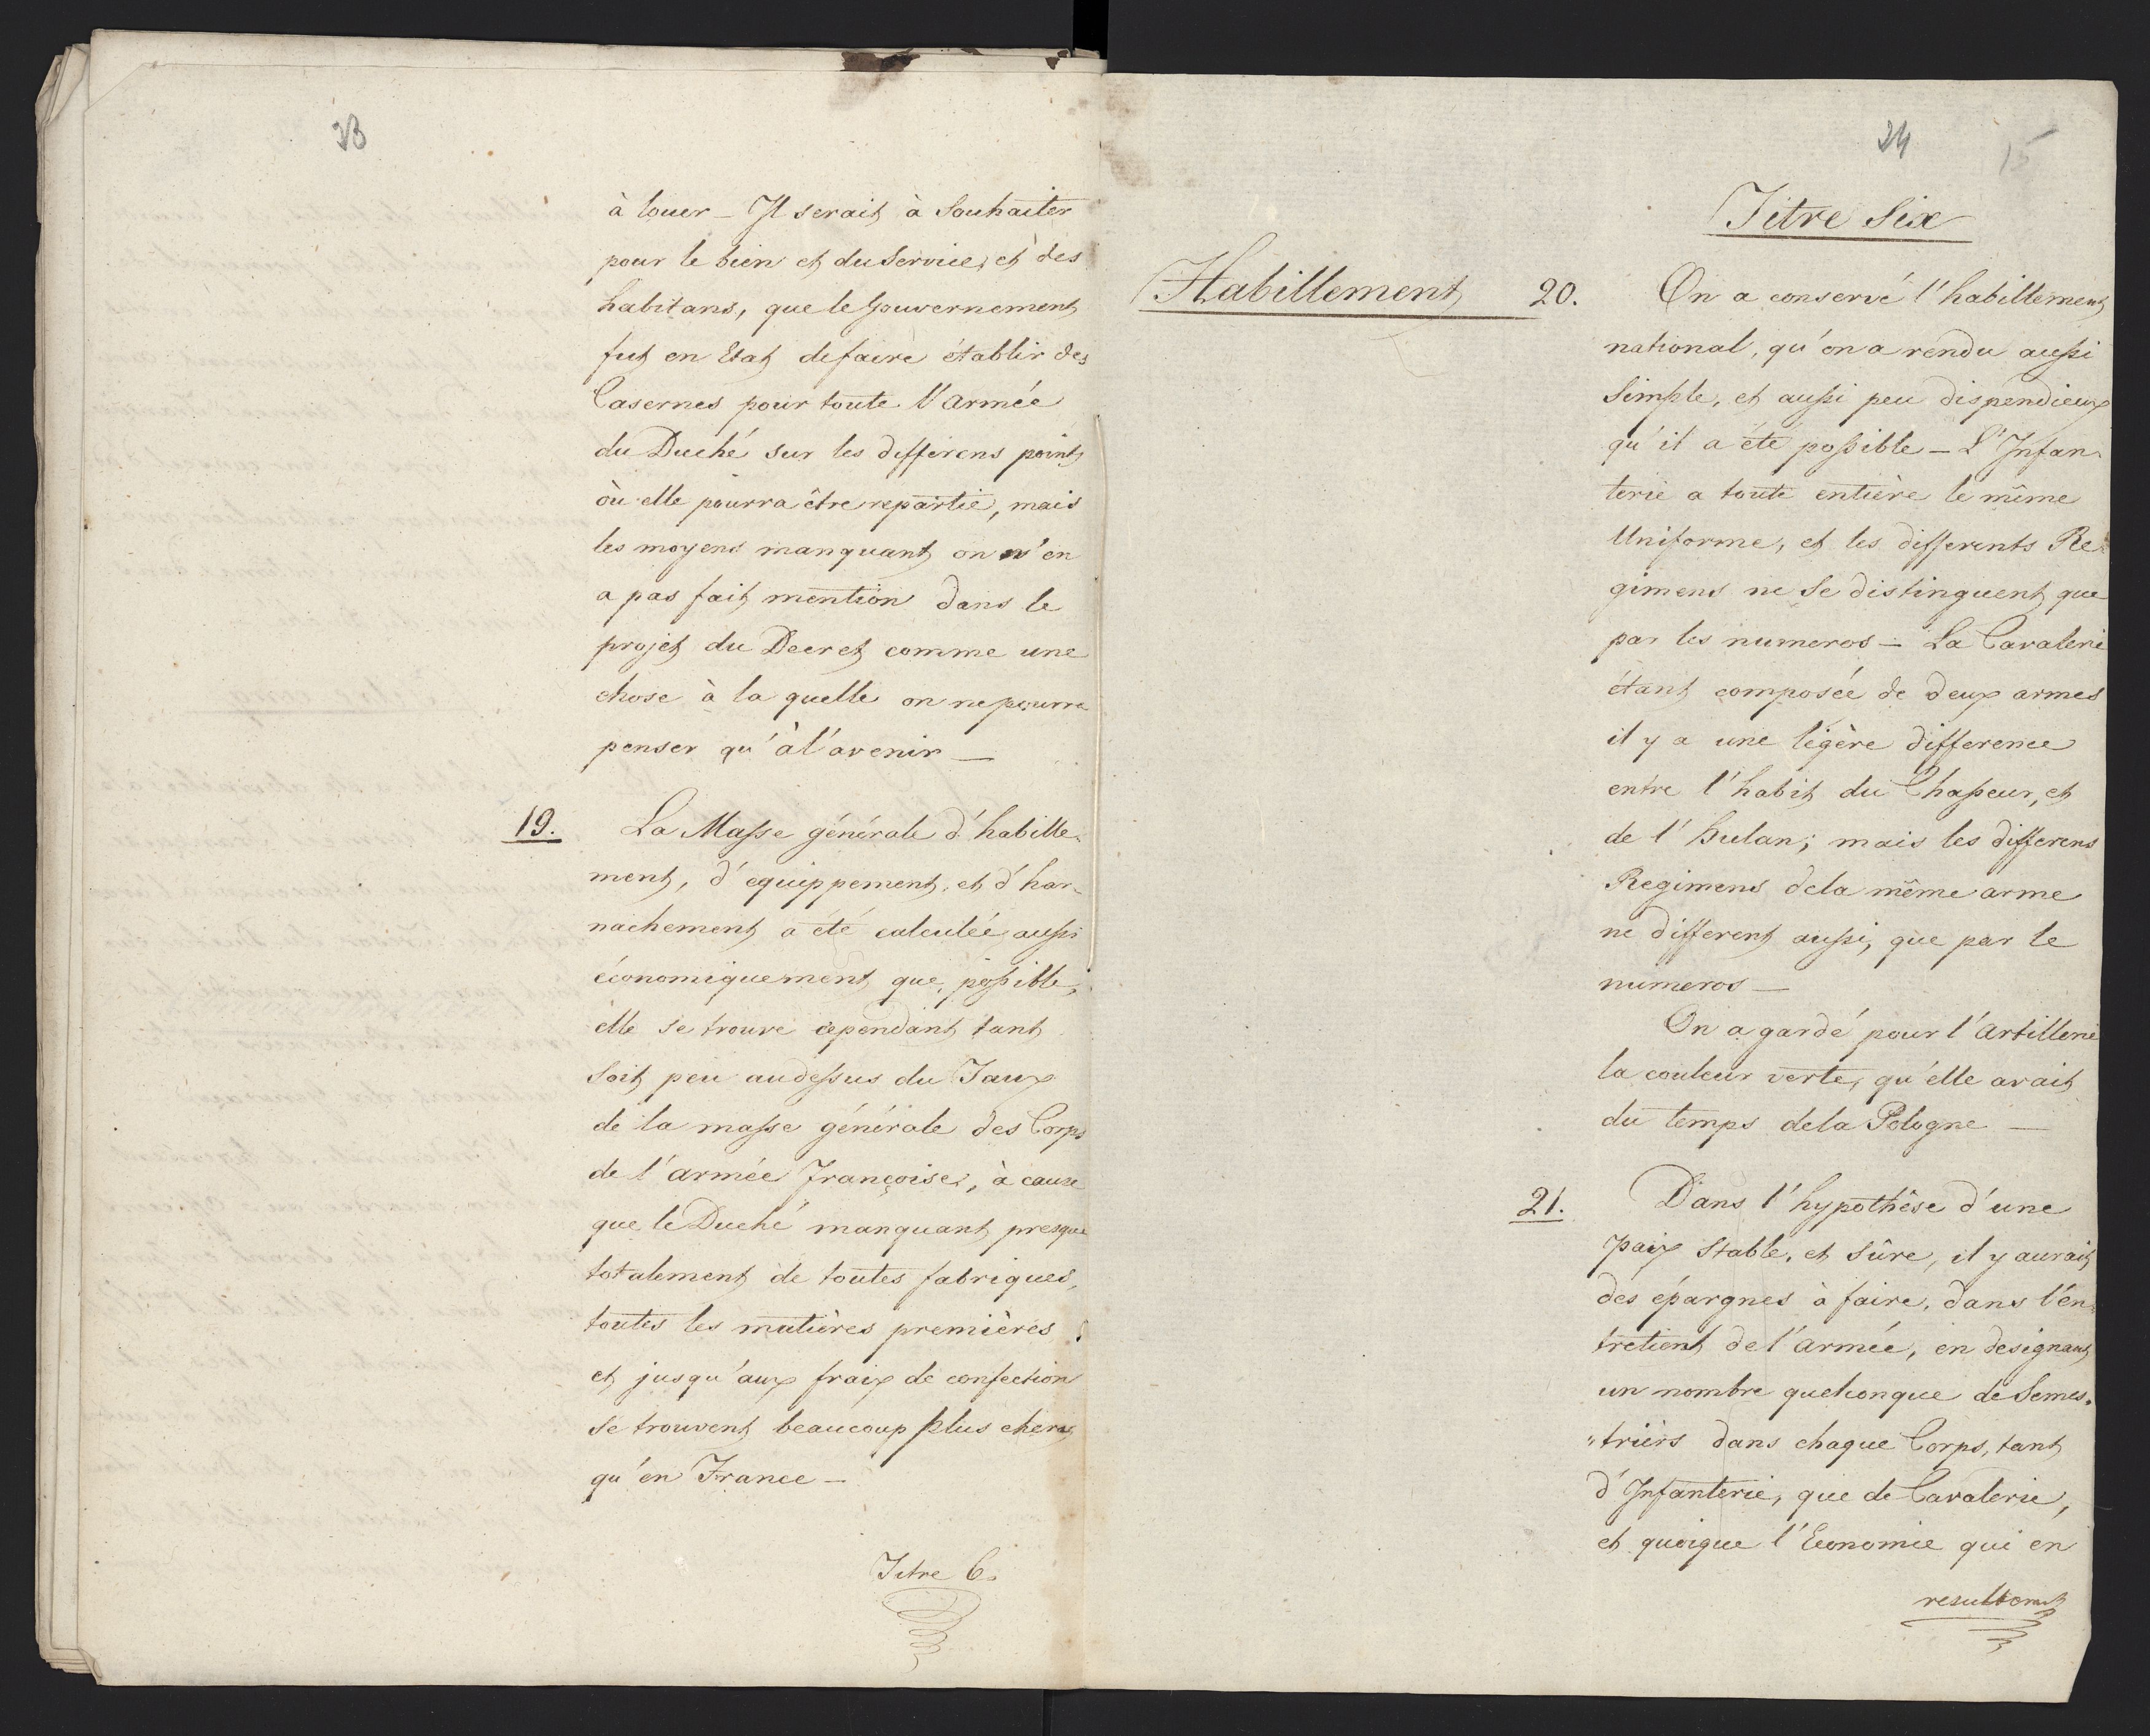 23
à louer — Il serait à Souhaiter
pour le bien et du Service, et des
habitans, que le Gouvernement
fut en Etat de faire établir des
Casernes pour toute l'armée
du Duché sur les differens points
où elle pourra être repartie, mais
les moyens manquant on n'en
a pas fait mention dans le
projet du Decret comme une
chose à la quelle on ne pourra
penser qu'à l'avenir —
19. La Masse générale d'habille-
ment, d'equippement, et d'har-
nachement a été calculée aussi
économiquement que possible,
elle se trouve cependant tant
soit peu audessus du Taux
de la masse générale des Corps
de l'armée Françoise, à cause
que le Duché manquant presque
totalement de toutes fabriques,
toutes les matières premières
et jusqu'aux fraix de confection
se trouvent beaucoup plus chers
qu'en France —
Titre 6.
24 15
Titre Six
Habillement 20. On a conservé l'habillement
national, qu'on a rendu aussi
Simple, et aussi peu dispendieux
qu'il a été possible — L'Infan-
terie a toute entière le même
Uniforme, et les differents Re-
gimens ne Se distinguent que
par les numeros — La Cavalerie
étant composée de deux armes
il y a une légère difference
entre l'habit du Chasseur, et
de l'hulan; mais les differens
Regimens de la même arme
ne different aussi, que par le
numeros —
On a gardé pour l'Artillerie
la couleur verte, qu'elle avait
du temps de la Pologne —
21. Dans l'hypothêse d'une
paix stable, et sûre, il y aurait
des épargnes à faire, dans l'en-
tretient de l'armée, en designant
un nombre quelconque de Semes-
"triers dans chaque Corps, tant
d'Infanterie, que de Cavalerie,
et quoique l'Economie qui en
resulterait